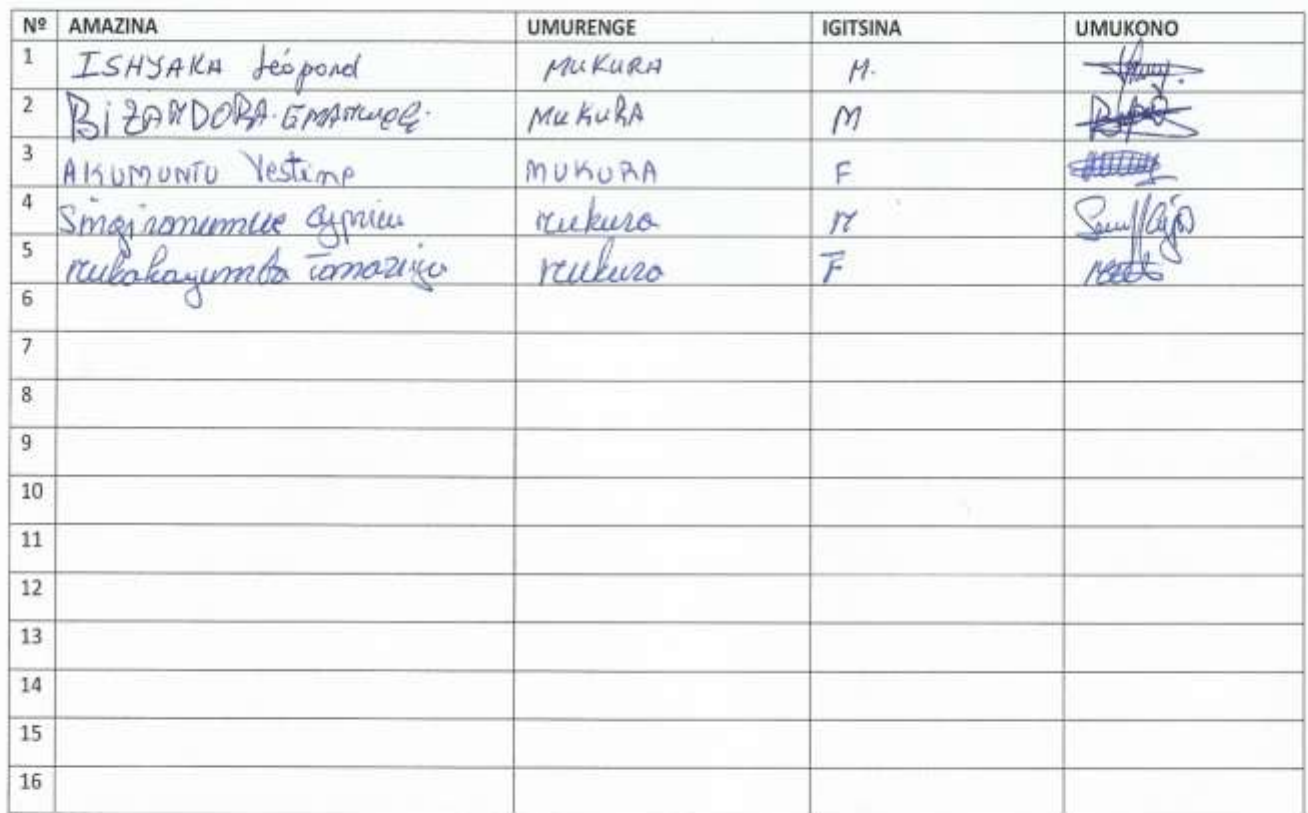 Nº AMAZINA UMURENGE IGITSINA UMUKONO
1 ISHYAKA Léopord MUKURA M.
2 BiZANDORA. EMANUEL. MUKURA M
3 AKUMUNTU Vestine MUKURA F
4 Cyprien mukura M
5 mukakayumba mukura F
6
7
8
9
10
11
12
13
14
15
16